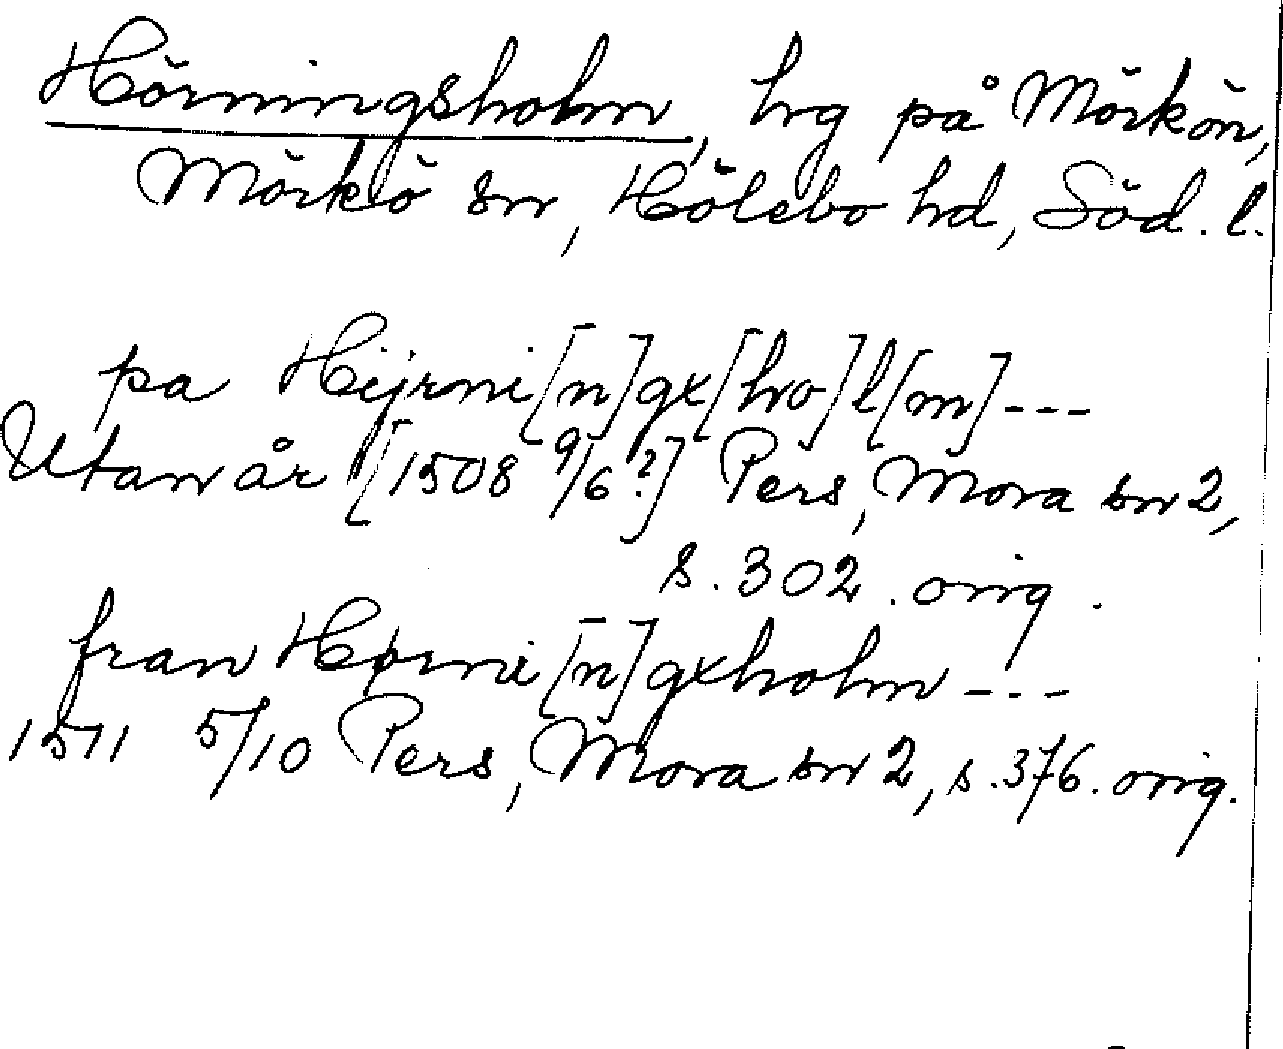 Hörningsholm, hrg på Mörkön,
Mörkö sn, Hölebo hd, Söd. l.
pa Hijrni[n]gx[ho]l[m]---
Utan år [1508 9/6?] Pers, Mora sn 2,
s. 302. orig.
fran Hørni[n]gxholm---
1511 5/10 Pers, Mora sn 2, s. 376. orig.